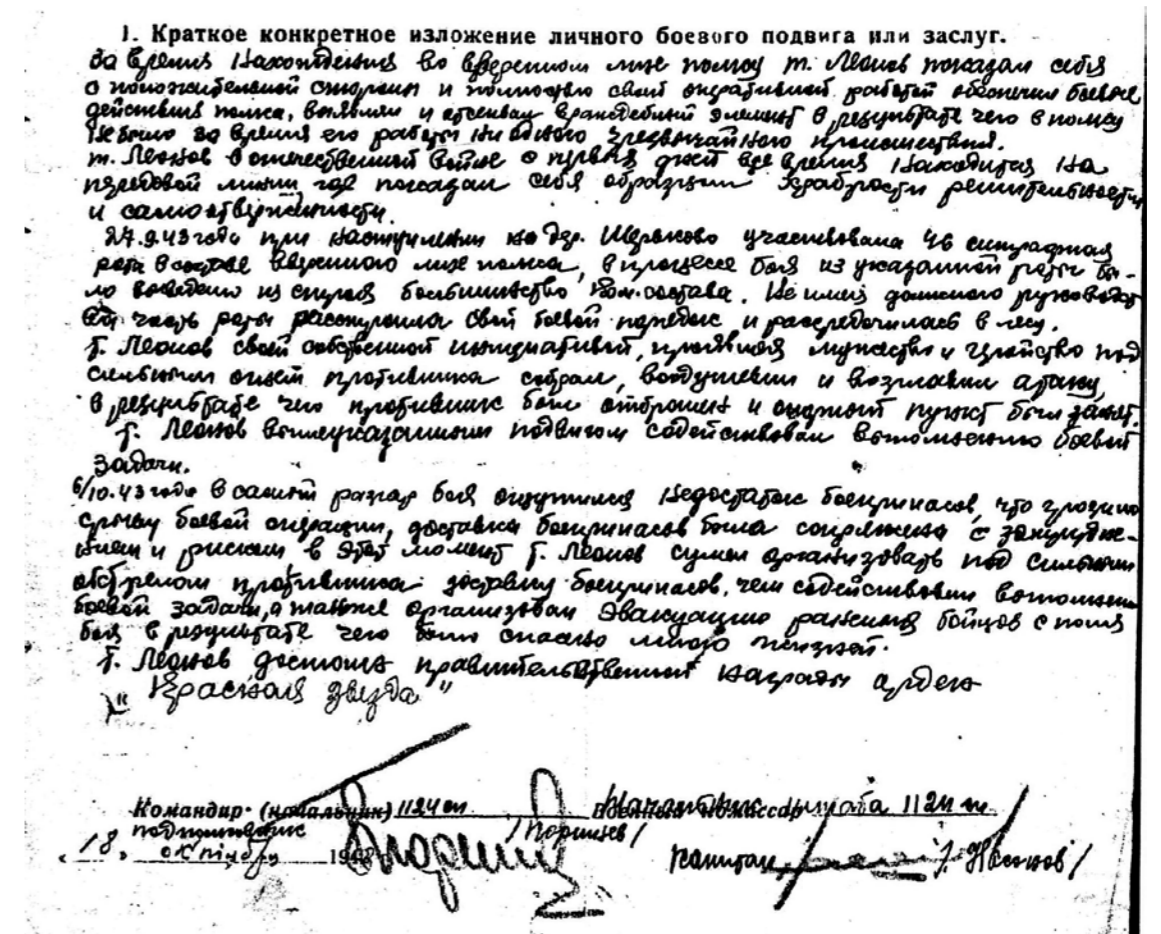 1. Краткое конкретное изложение личного боевого подвига или заслуг.
За время нахождения во вверенном мне полку т. Леонов показал себя
с положительной стороны и полностью своей оперативной работой обеспечил боевые
действия полка, выявлял и отсеивал враждебный элемент в результате чего в полку
не было за время его работы ни одного чрезвычайного происшествия.
т. Леонов в отечественной войне с первых дней все время находится на
передовой линии, где показал себя образцом храбрости решительности
и самоотверженности.
27.9.43 года при наступлении на дер. участвовала 46 штрафная
рота в составе вверенного мне полка, в процессе боя из указанной роты бы-
ло выведено из строя большинство ком.состава. Не имея должного руководст
ва часть роты расстроила свой боевой порядок и рассредоточилась в лесу.
т. Леонов своей собственной инициативой, проявляя мужество и геройство под
сильным огнем противника собрал, воодушевил и возглавил атаку,
в результате чего противник был отброшен и опорный пункт был занят.
т. Леонов вышеуказанным подвигом содействовал выполнению боевой
задачи.
6/10.43 года в самый разгар боя ощутился недостаток боеприпасов, что грозило
срыву боевой операции, доставка боеприпасов была сопряжена с затрудне-
нием и риском в этот момент т. Леонов сумел организовать под сильным
обстрелом противника доставку боеприпасов, чем содействовал выполнению
боевой задачи, а также организовал эвакуацию раненых бойцов с поля
боя в результате чего было спасено много жизней.
т. Леонов достоин правительственной награды орден
"Красная звезда"
Командир (начальник) 1124 сп Начальник штаба 1124 сп
подполковник
18 октября 194
капитан